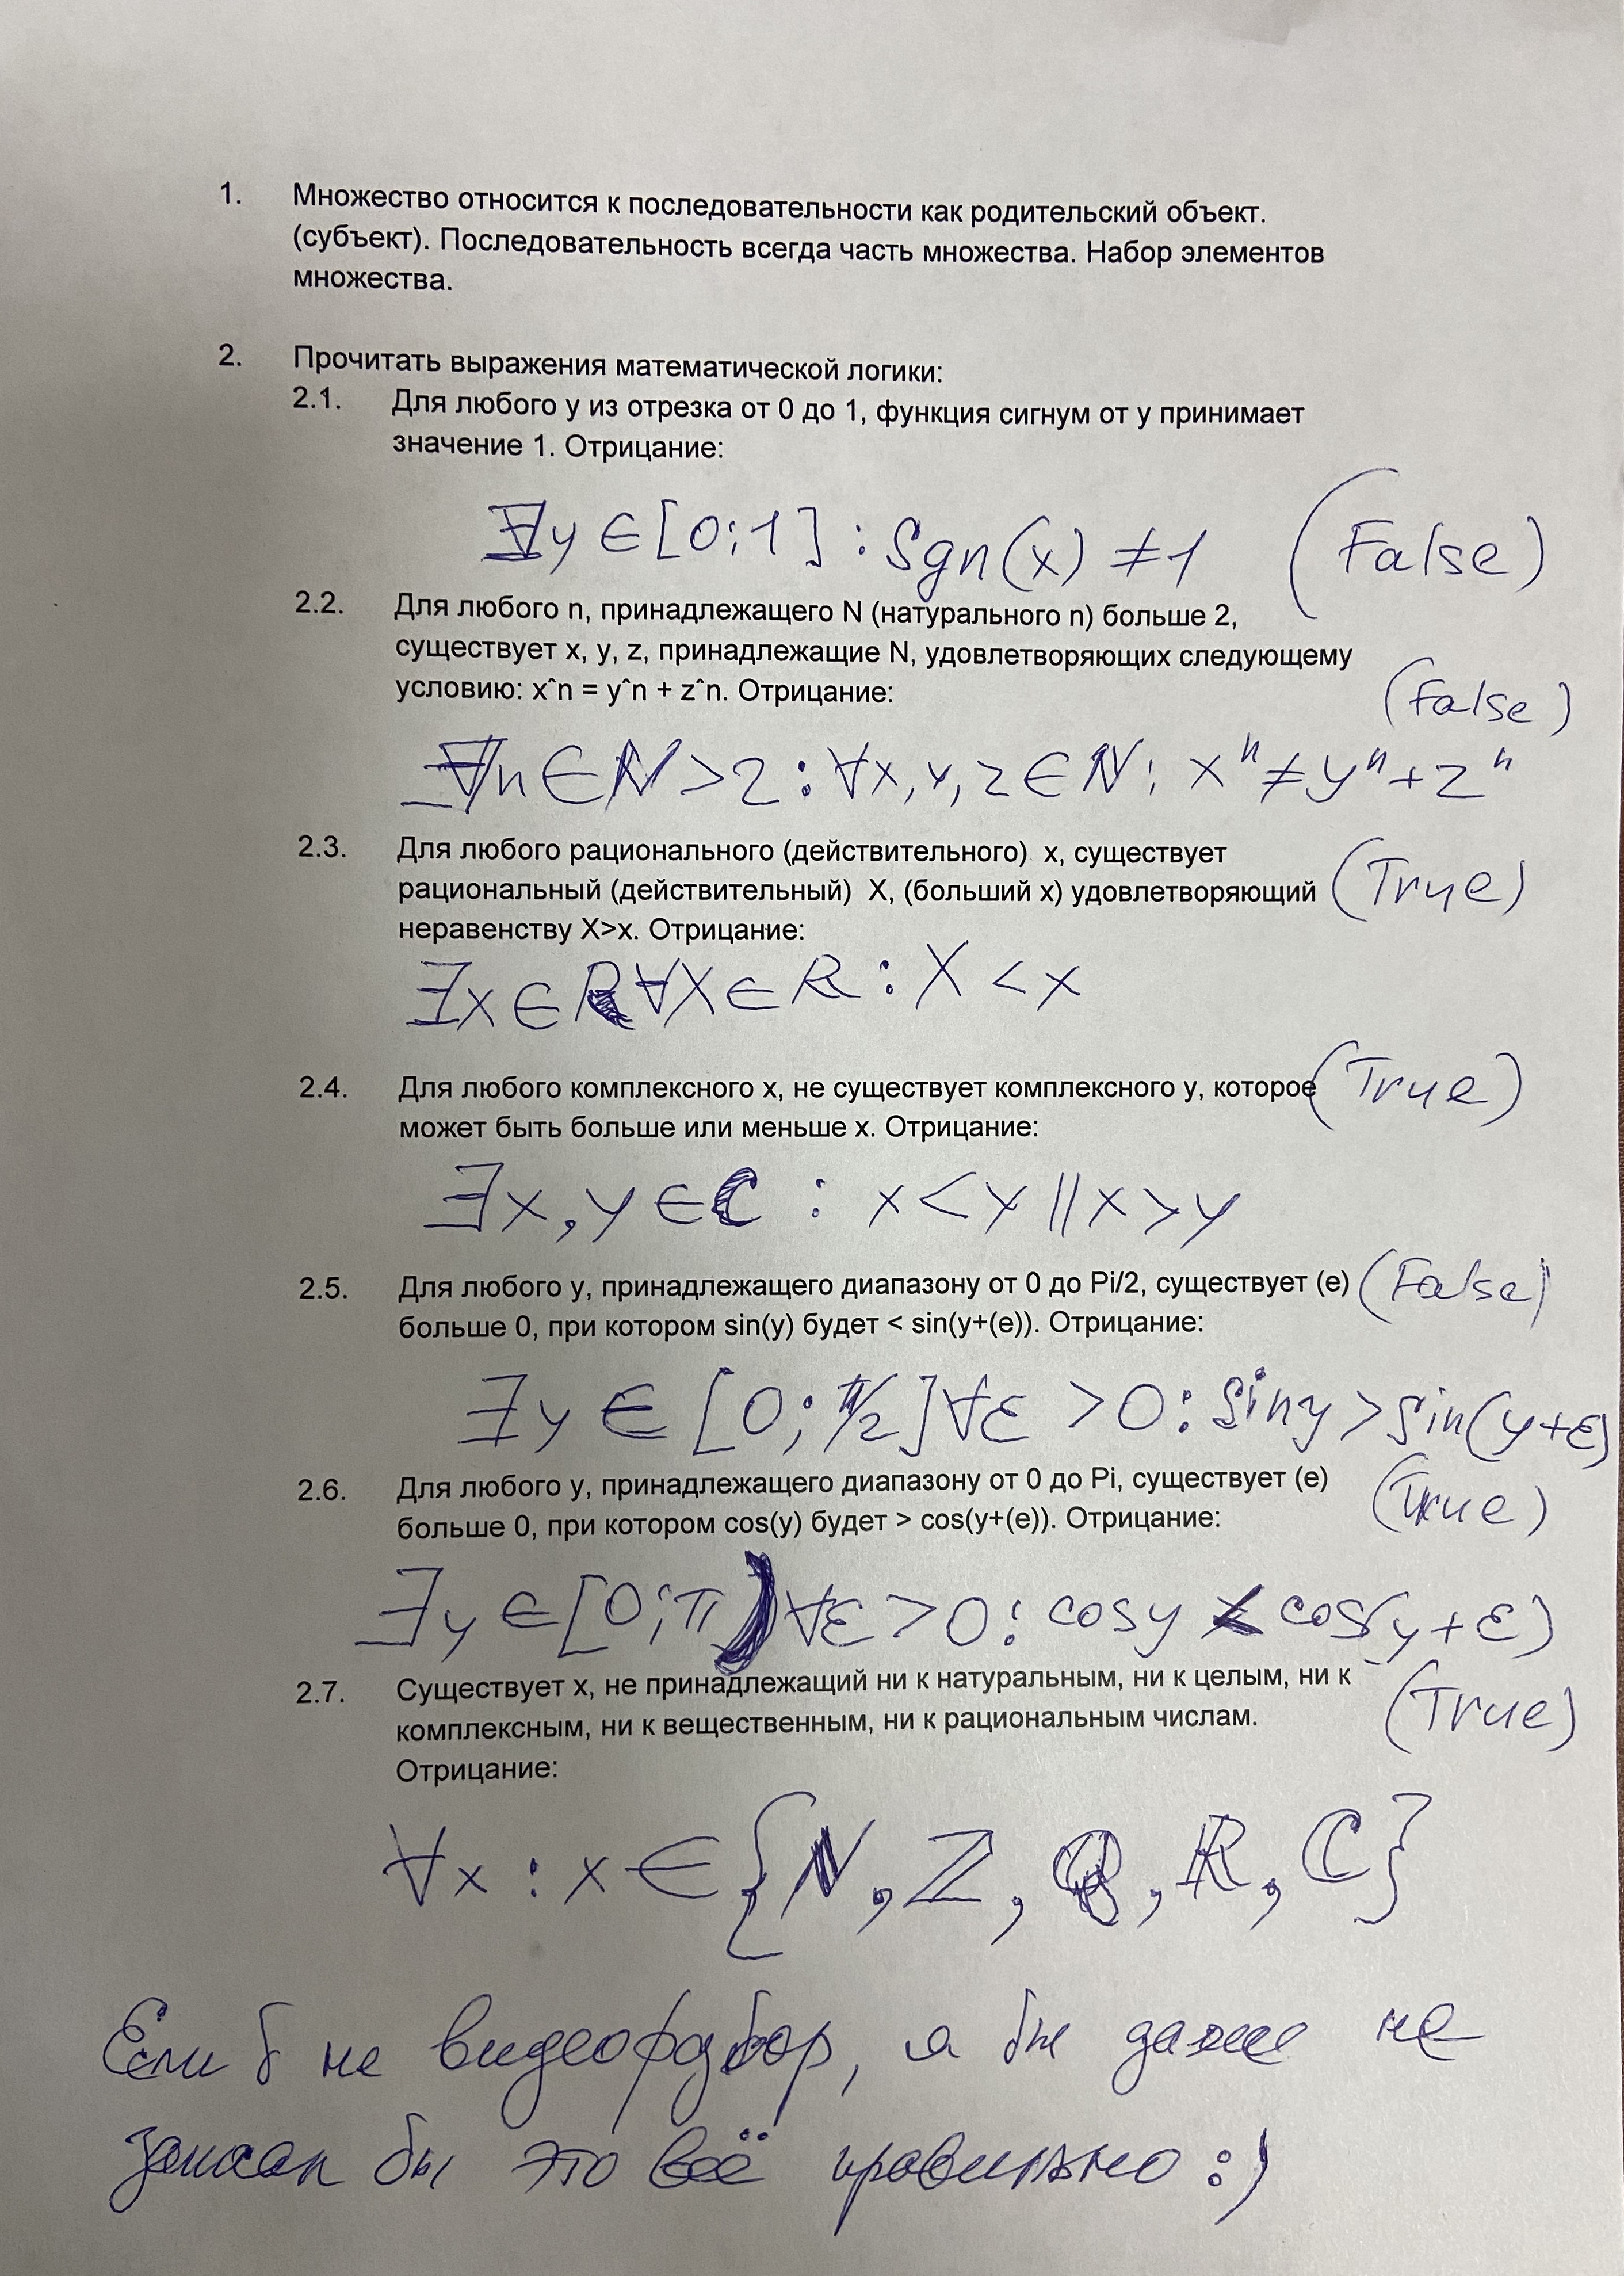 1. Множество относится к последовательности как родительский объект.
(субъект). Последовательность всегда часть множества. Набор элементов
множества.
2. Прочитать выражения математической логики:
2.1. Для любого y из отрезка от 0 до 1, функция сигнум от y принимает
значение 1. Отрицание:
∃y ∈ [0;1] : Sgn(x) ≠ 1 (False)
2.2. Для любого n, принадлежащего N (натурального n) больше 2,
существует x, y, z, принадлежащие N, удовлетворяющих следующему
условию: x^n = y^n + z^n. Отрицание:
(False)
∃n ∈ ℕ > 2 : ∀x, y, z ∈ ℕ : xⁿ ≠ yⁿ + zⁿ
2.3. Для любого рационального (действительного) x, существует
рациональный (действительный) X, (больший x) удовлетворяющий (True)
неравенству X>x. Отрицание:
∃x ∈ ℝ ∀X ∈ ℝ : X < x
2.4. Для любого комплексного x, не существует комплексного y, которое (True)
может быть больше или меньше x. Отрицание:
∃x, y ∈ ℂ : x < y || x > y
2.5. Для любого y, принадлежащего диапазону от 0 до Pi/2, существует (e) (False)
больше 0, при котором sin(y) будет < sin(y+(e)). Отрицание:
∃y ∈ [0; π/2] ∀ε > 0 : sin y > sin(y+ε)
2.6. Для любого y, принадлежащего диапазону от 0 до Pi, существует (e) (True)
больше 0, при котором cos(y) будет > cos(y+(e)). Отрицание:
∃y ∈ [0; π) ∀ε > 0 : cos y < cos(y+ε)
2.7. Существует x, не принадлежащий ни к натуральным, ни к целым, ни к
комплексным, ни к вещественным, ни к рациональным числам. (True)
Отрицание:
∀x : x ∈ {ℕ, ℤ, ℚ, ℝ, ℂ}
Если б не видеоразбор, я бы даже не
записал бы это всё правильно :)